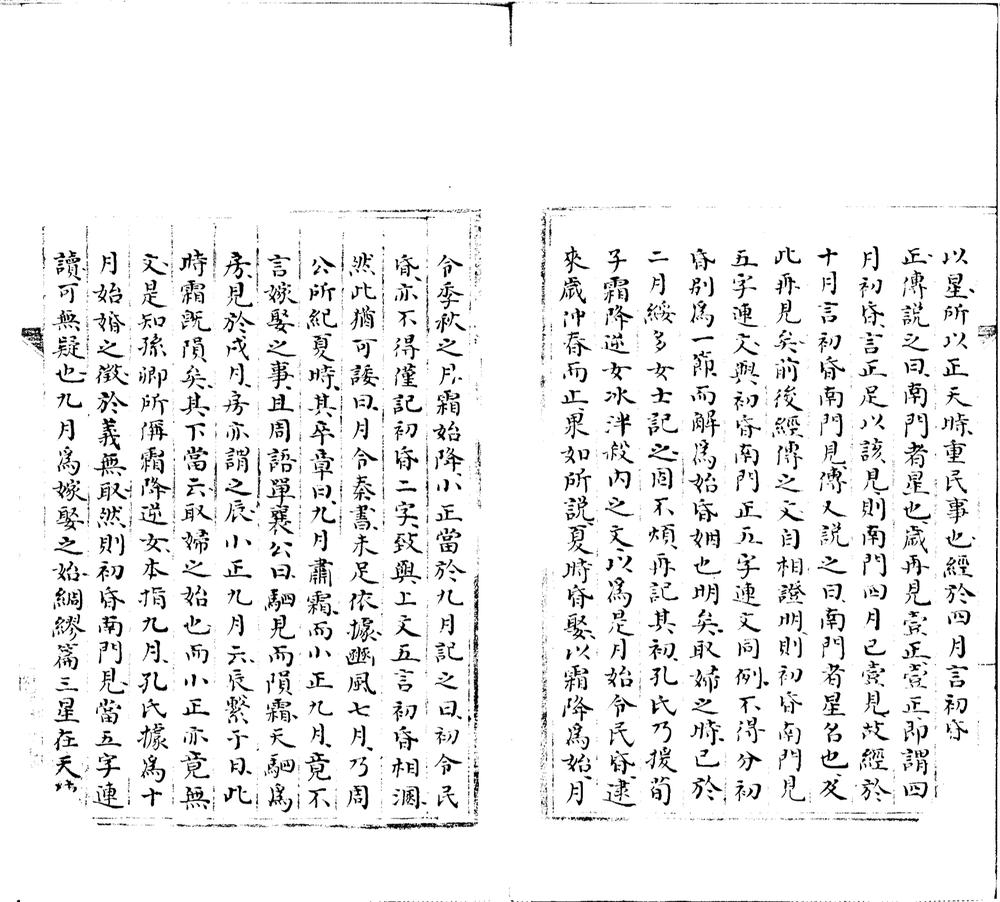 以星所以正天時重民事也經於四月言初昏
正傳説之曰南門者星也歲再見壹正壹正即謂四
月初昏言正足以該見則南門四月已壹見故經於
十月言初昏南門見傳又説之曰南門者星名也及
此再見矣前後經傳之文自相證明則初昏南門見
五字連文與初昏南門正五字連文同例不得分初
昏别為一節而解為始昏姻也明矣取婦之時已於
二月綏多女士記之固不煩再記其初孔氏乃援荀
子霜降逆女冰泮殺内之文以為是月始令民昏逮
來歲仲春而止果如所説夏時昏娶以霜降為始月
令季秋之月霜始降小正當於九月記之曰初令民
昏亦不得僅記初昏二字致與上文五言初昏相溷
然此猶可諉曰月令秦書未足依據豳風七月乃周
公所紀夏時其卒章曰九月肅霜而小正九月竟不
言嫁娶之事且周語單襄公曰駟見而隕霜天駟為
房見於戌月房亦謂之辰小正九月云辰繫于日此
時霜既隕矣其下當云取婦之始也而小正亦竟無
文是知孫卿所偁霜降逆女本指九月孔氏據為十
月始婚之徵於義無取然則初昏南門見當五字連
讀可無疑也九月為嫁娶之始綢繆篇三星在天